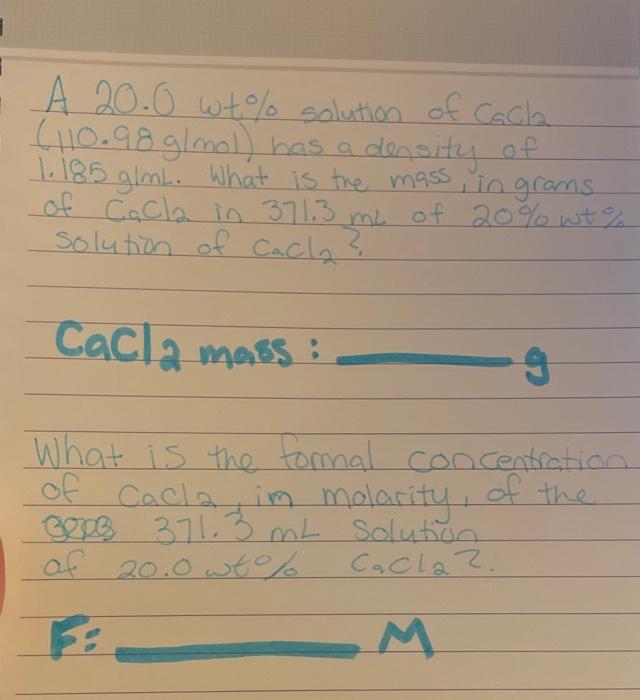 A 20.0 wt% solution of CaCl2
(110.98 g/mol) has a density of
1.185 g/mL. What is the mass, in grams
of CaCl2 in 371.3 mL of 20% wt%
solution of CaCl2?
CaCl2 mass: ________ g
What is the formal concentration
of CaCl2, im molarity, of the
371.3 mL solution
of 20.0 wt% CaCl2?.
F= ________ M